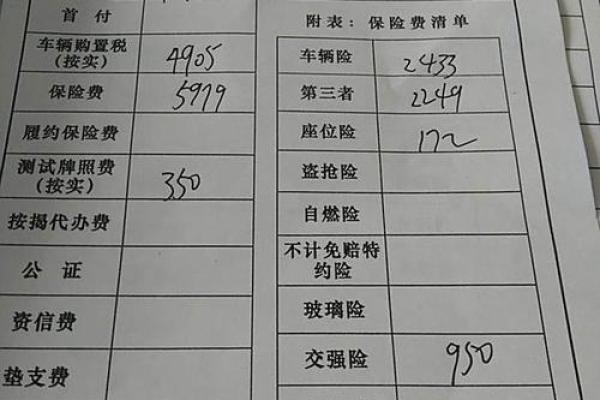 首 付
车辆购置税
(按实)
4905
保险费
5979
履约保险费
测试牌照费
(按实)
350
按揭代办费
公 证
资信费
垫支费
附表：保险费清单
车辆险
2433
第三者
2249
座位险
172
盗抢险
自燃险
不计免赔特
约险
玻璃险
交强险
950